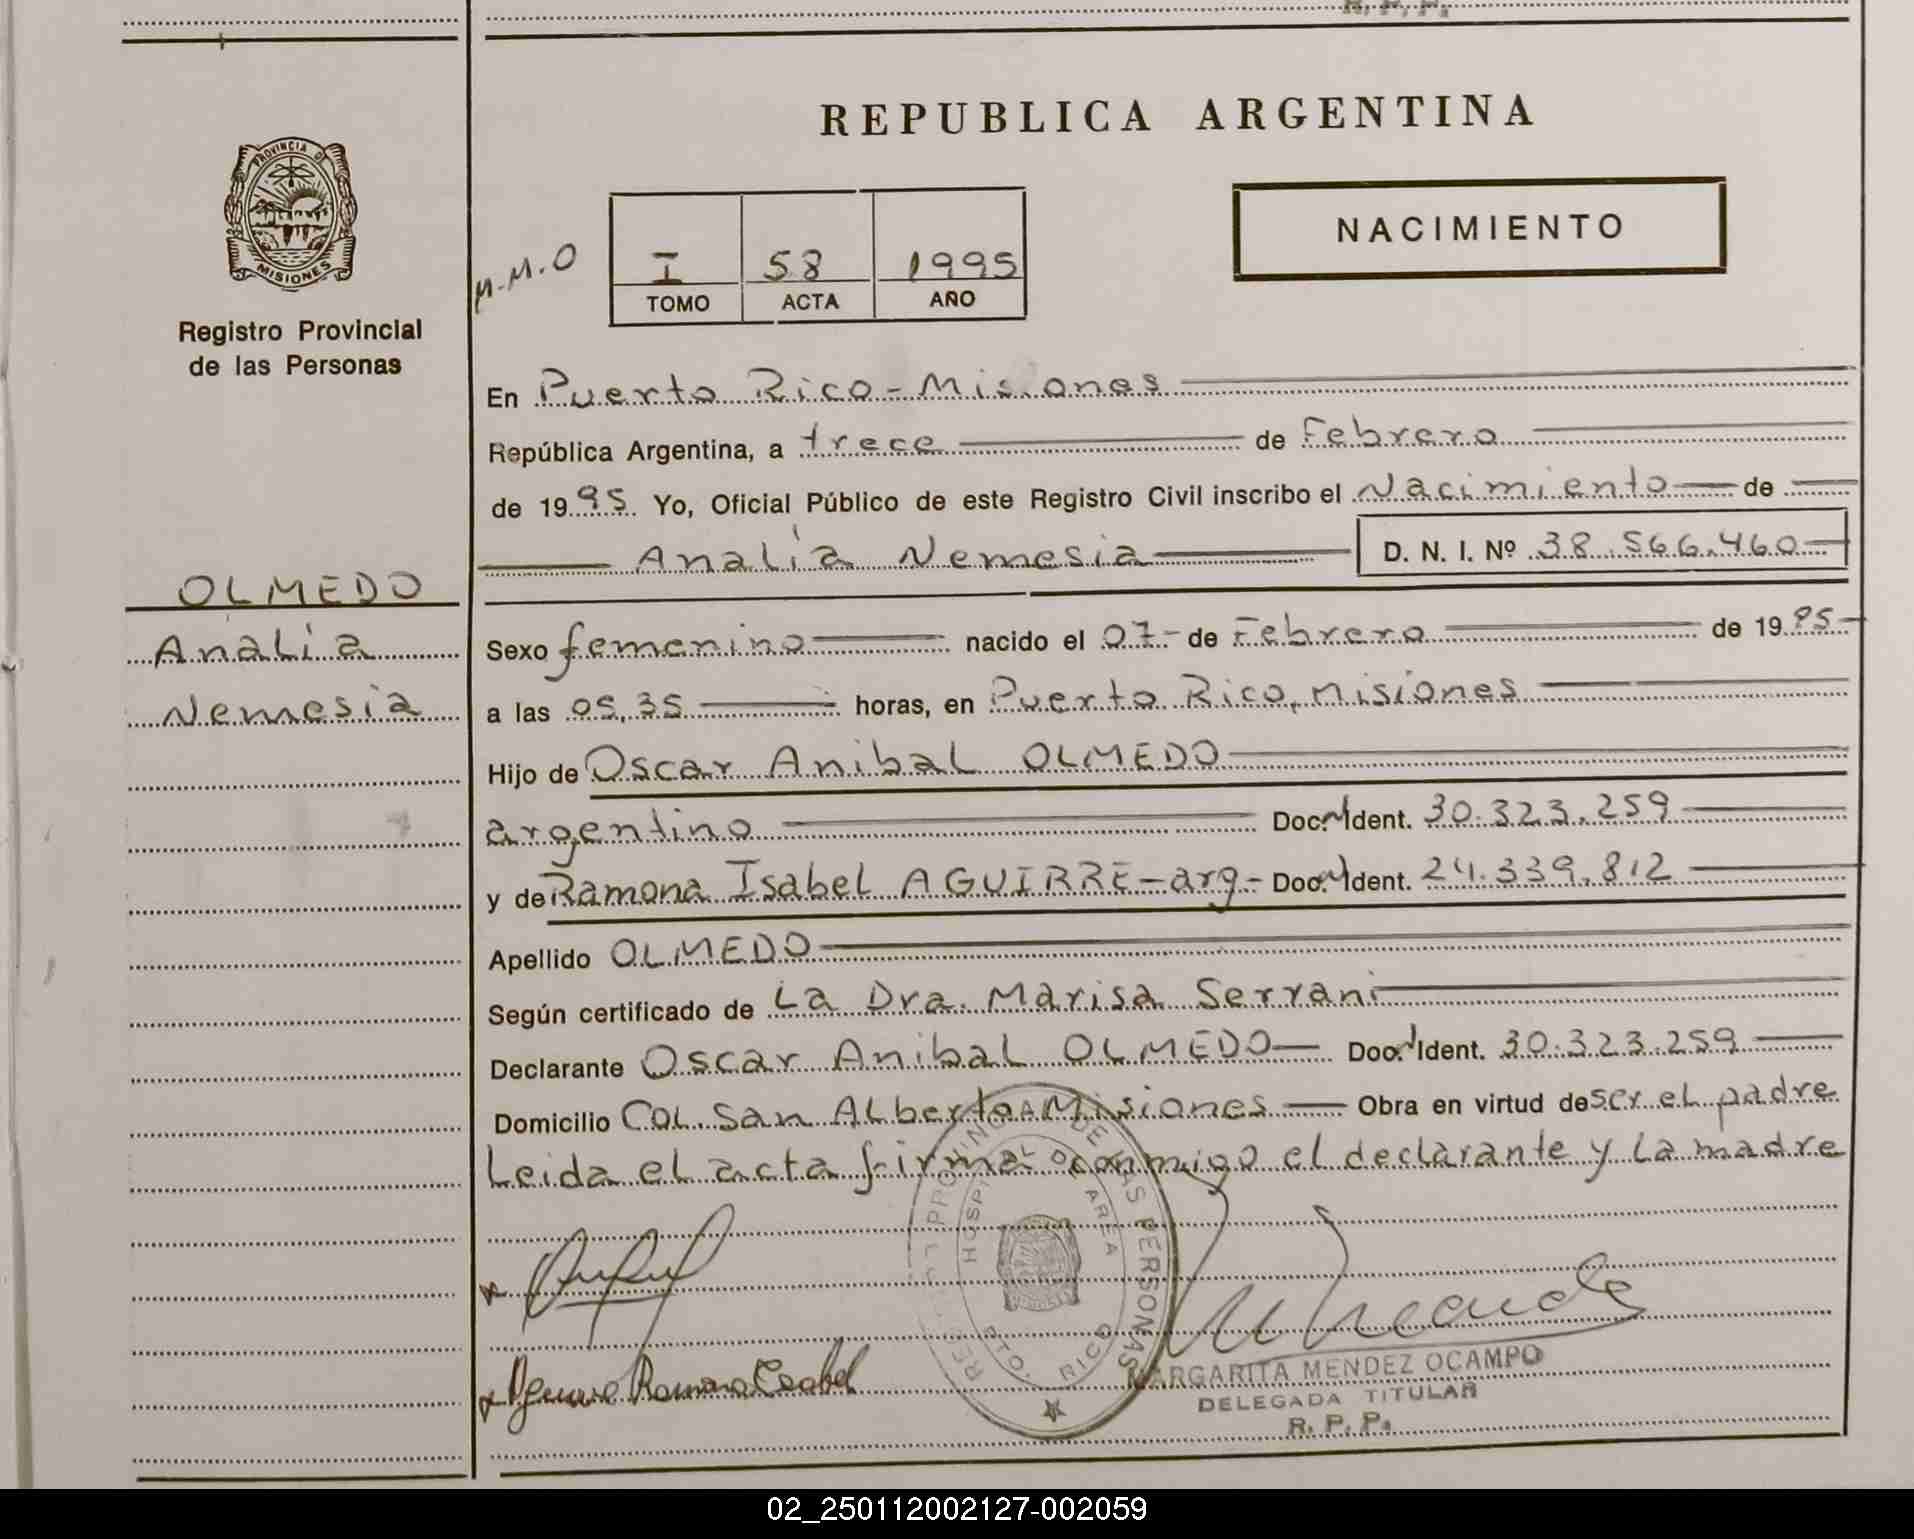 R. P. P.
REPUBLICA ARGENTINA
PROVINCIA DE
MISIONES
Registro Provincial
de las Personas
M.M.O
I 58 1995
TOMO ACTA AÑO
NACIMIENTO
En Puerto Rico - Misiones
República Argentina, a trece de Febrero
de 1995 Yo, Oficial Público de este Registro Civil inscribo el Nacimiento de
Analía Nemesia D. N. I. Nº 38.566.460
OLMEDO
Analía
Nemesia
Sexo femenino nacido el 07- de Febrero de 1995
a las 05,35 horas, en Puerto Rico, Misiones
Hijo de Oscar Anibal OLMEDO
argentino Doc. Ident. 30.323.259
y de Ramona Isabel AGUIRRE-arg- Doc. Ident. 24.339.812
Apellido OLMEDO
Según certificado de La Dra. Marisa Serrani
Declarante Oscar Anibal OLMEDO Doc. Ident. 30.323.259
Domicilio Col. San Alberto Misiones Obra en virtud de ser el padre
Leida el acta firma conmigo el declarante y la madre
REGISTRO PROVINCIAL DE LAS PERSONAS
HOSPITAL DE AREA
PTO. RICO
Aguirre Ramona Isabel
MARGARITA MENDEZ OCAMPO
DELEGADA TITULAR
R. P. P.
02_250112002127-002059